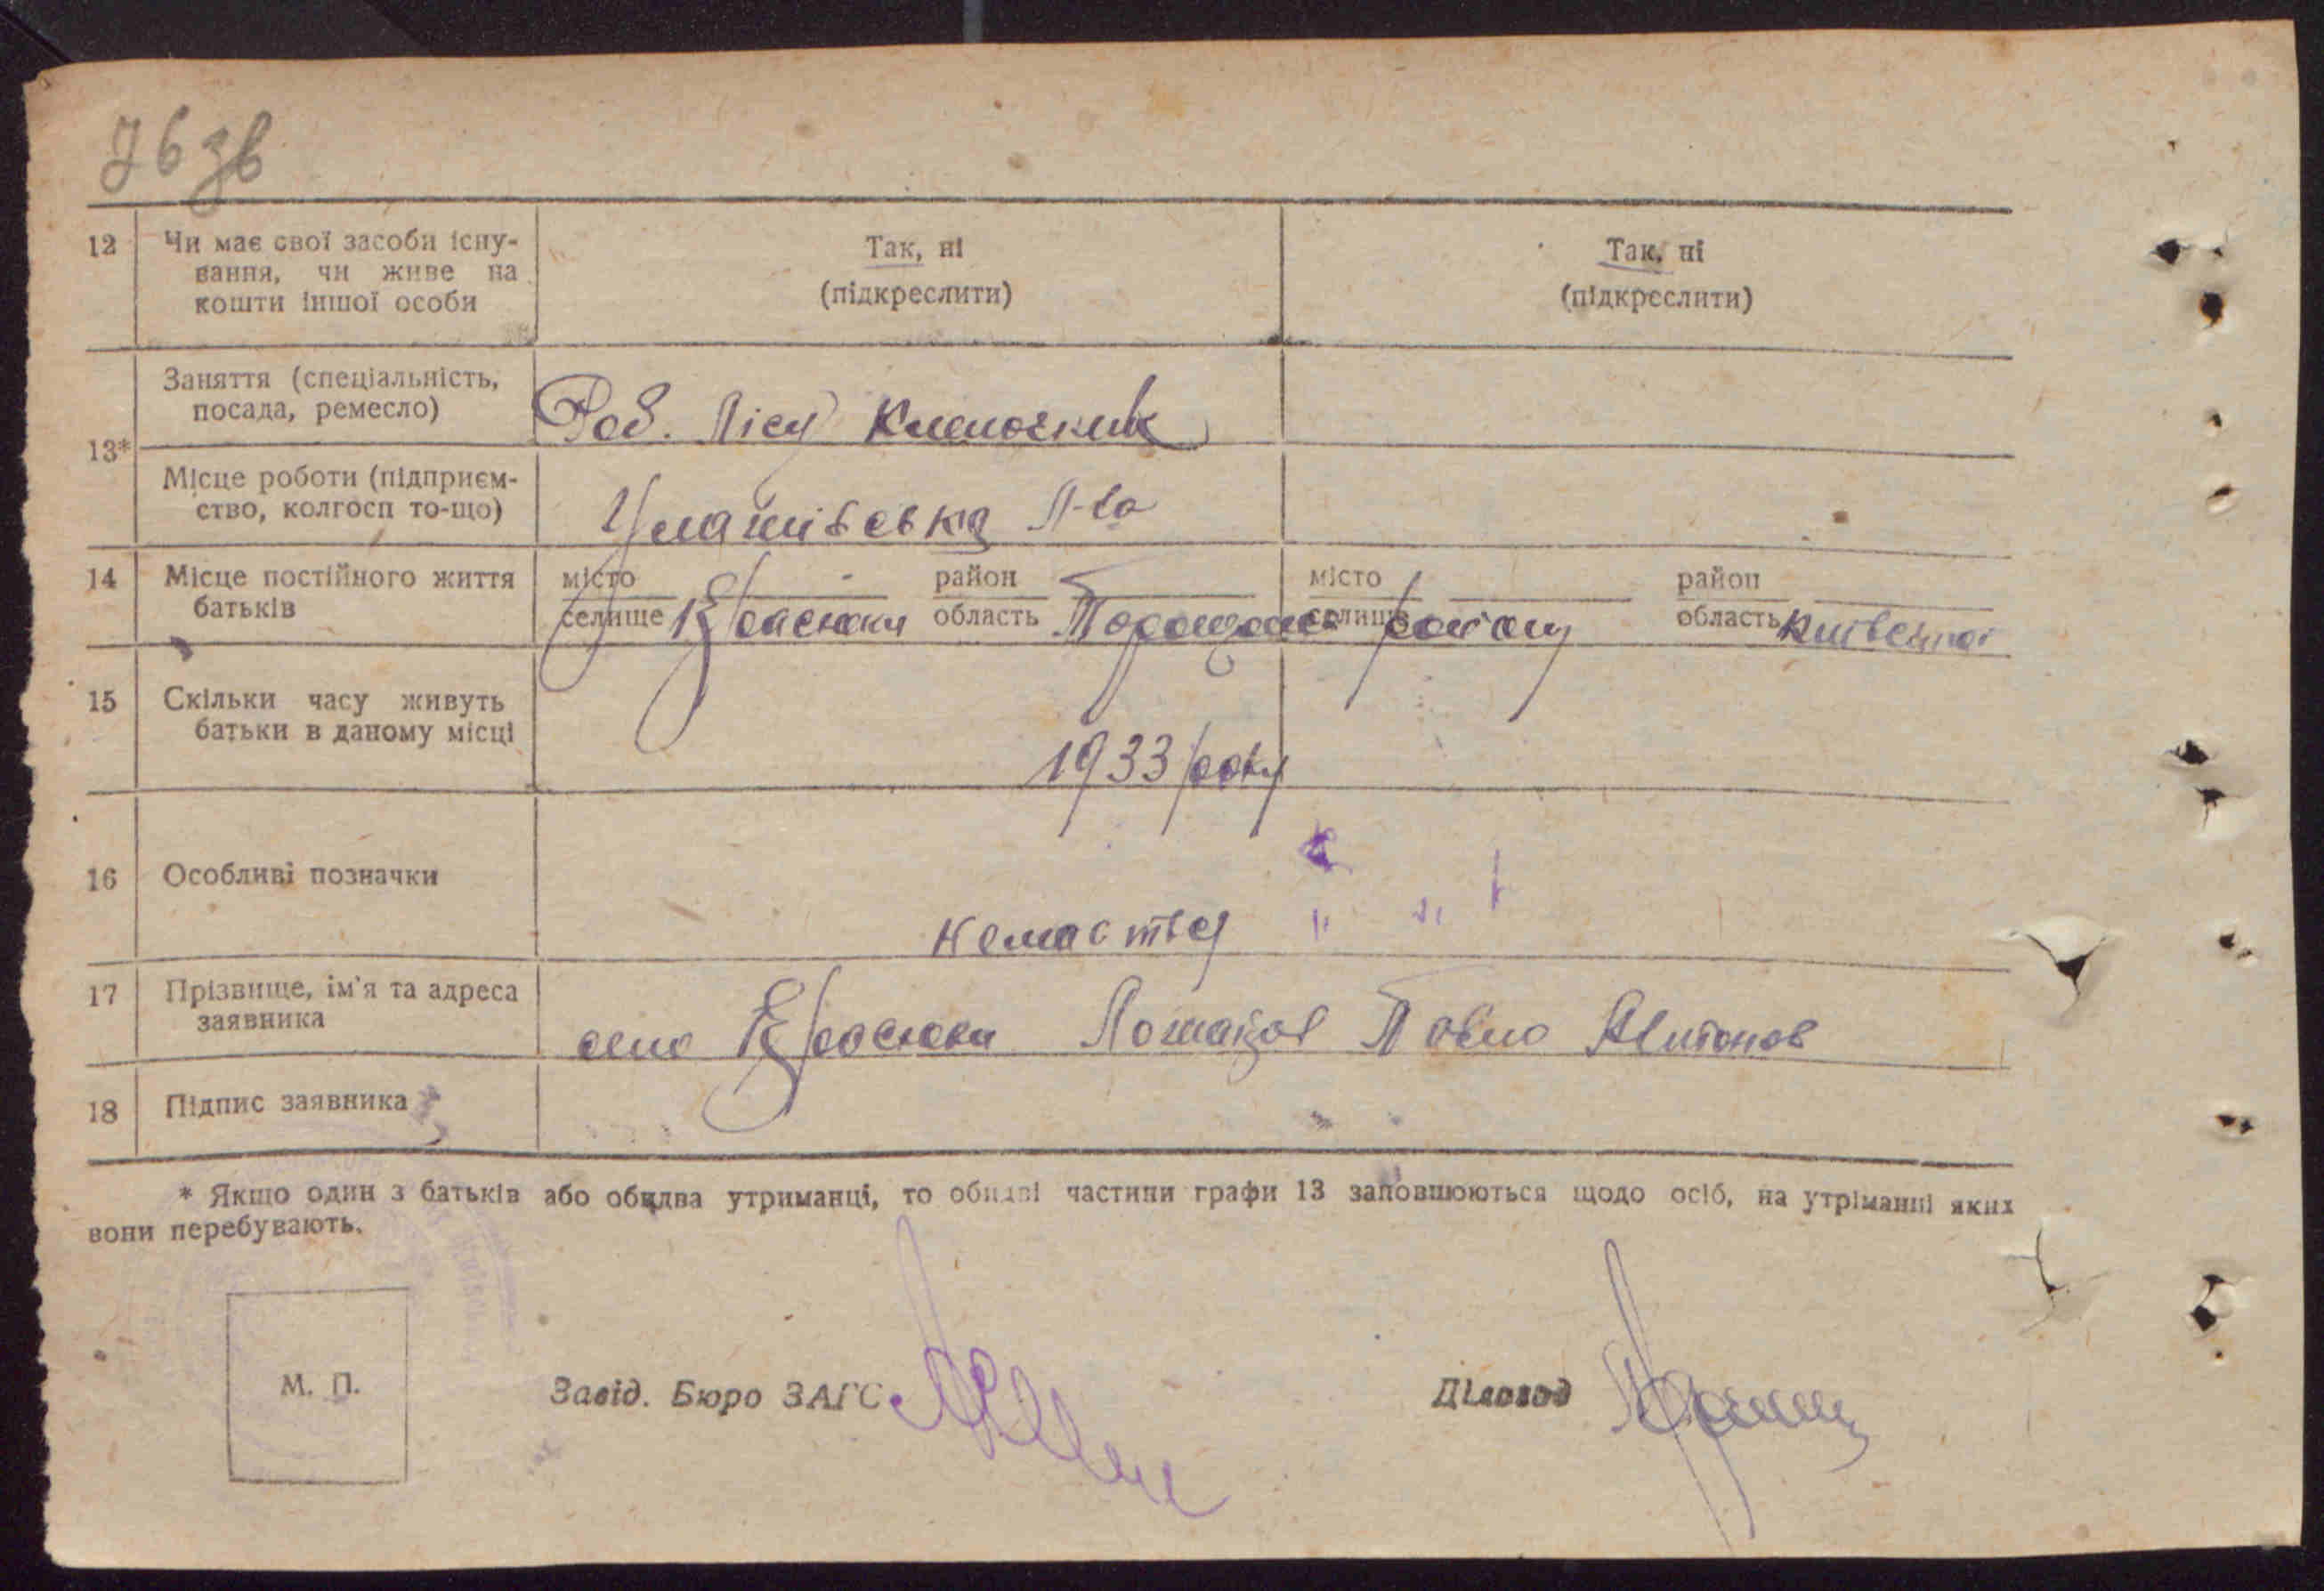 76 зв
12 Чи має свої засоби існу- Так, ні Так, ні
вання, чи живе на (підкреслити) (підкреслити)
кошти іншої особи
Заняття (спеціальність,
посада, ремесло) Роб. Лісу
13*
Місце роботи (підприєм-
ство, колгосп то-що)
14 Місце постійного життя місто район місто район
батьків селище область селище району область Київської
15 Скільки часу живуть
батьки в даному місці
1933 року
16 Особливі позначки
17 Прізвище, ім'я та адреса
заявника село Павло Антонов
18 Підпис заявника
* Якщо один з батьків або обидва утриманці, то обидві частини графи 13 заповнюються щодо осіб, на утріманні яких
вони перебувають.
М. П. Завід. Бюро ЗАГС Діловод